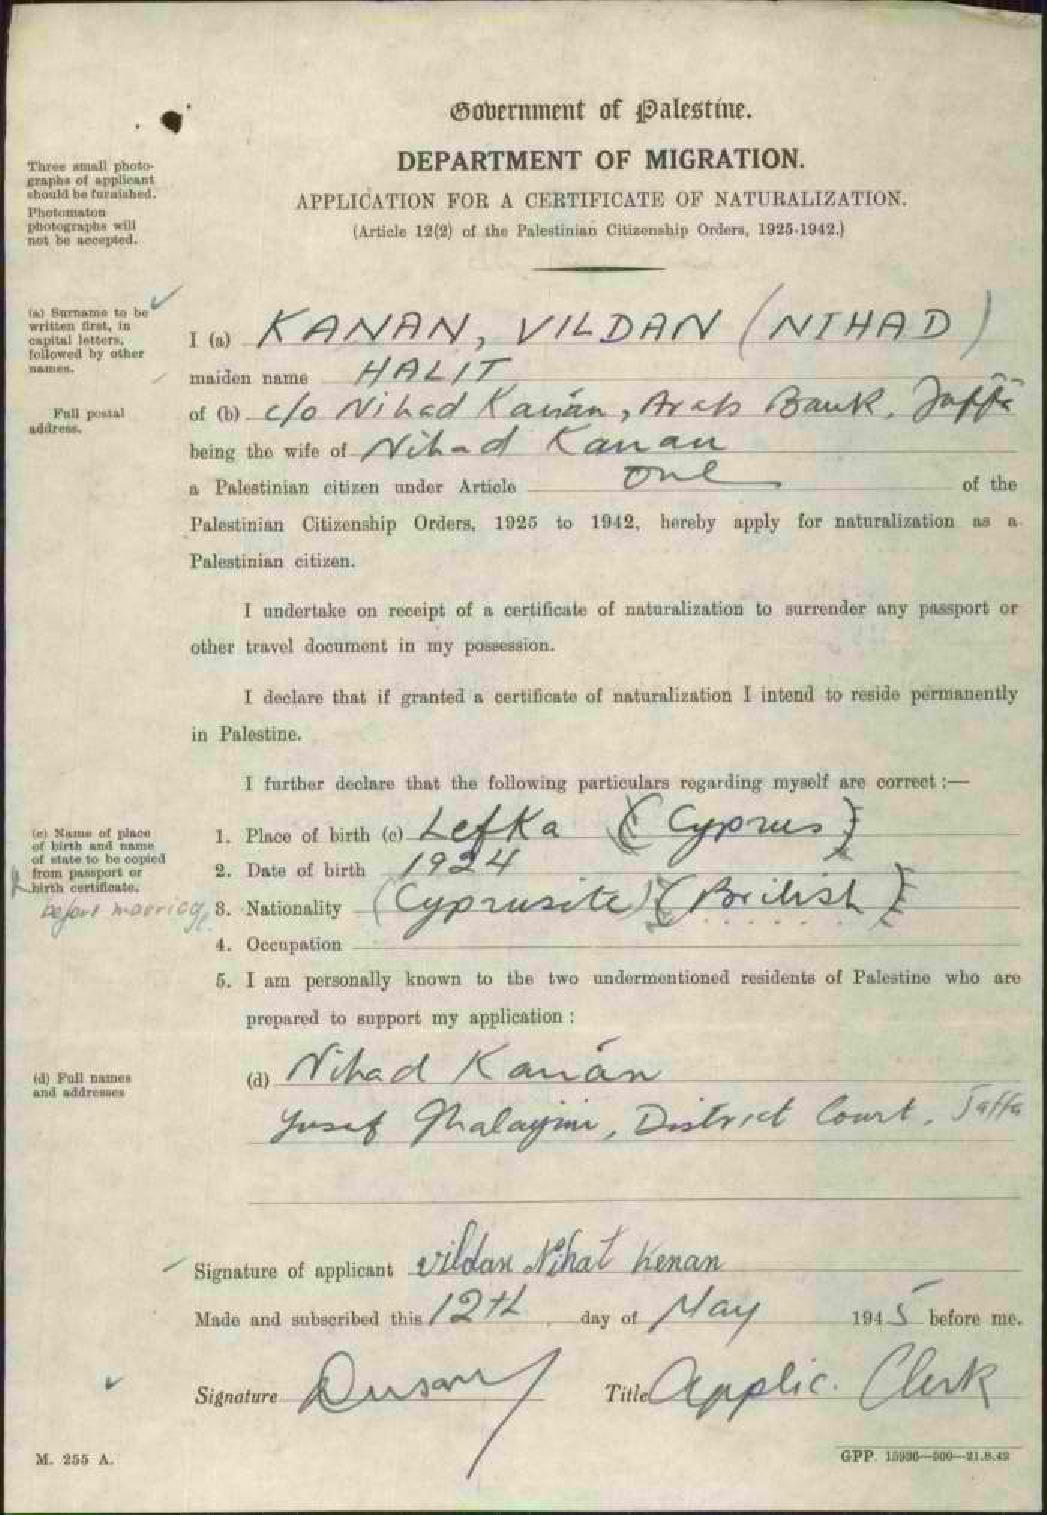 Government of Palestine.
DEPARTMENT OF MIGRATION.
APPLICATION FOR A CERTIFICATE OF NATURALIZATION.
(Article 12(2) of the Palestinian Citizenship Orders, 1925-1942.)
Three small photo-
graphs of applicant
should be furnished.
Photomaton
photographs will
not be accepted.
(a) Surname to be
written first, in
capital letters,
followed by other
names.
I (a) KANAN, VILDAN (NIHAD)
maiden name HALIT
Full postal
address.
of (b) c/o Nihad Kanán, Arab Bank, Jaffa
being the wife of Nihad Kanan
a Palestinian citizen under Article one of the
Palestinian Citizenship Orders, 1925 to 1942, hereby apply for naturalization as a
Palestinian citizen.
I undertake on receipt of a certificate of naturalization to surrender any passport or
other travel document in my possession.
I declare that if granted a certificate of naturalization I intend to reside permanently
in Palestine.
I further declare that the following particulars regarding myself are correct :—
(c) Name of place
of birth and name
of state to be copied
from passport or
birth certificate.
1. Place of birth (c) Lefka (Cyprus)
2. Date of birth 1924
before
3. Nationality (Cyprusite) (British)
4. Occupation
5. I am personally known to the two undermentioned residents of Palestine who are
prepared to support my application :
(d) Full names
and addresses
(d) Nihad Kanán
Yusef, District Court, Jaffa
Signature of applicant Vildan Nihat Kenan
Made and subscribed this 12th day of May 1945 before me.
Signature Title Applic. Clerk
M. 255 A.
GPP. 15936—500—21.8.42